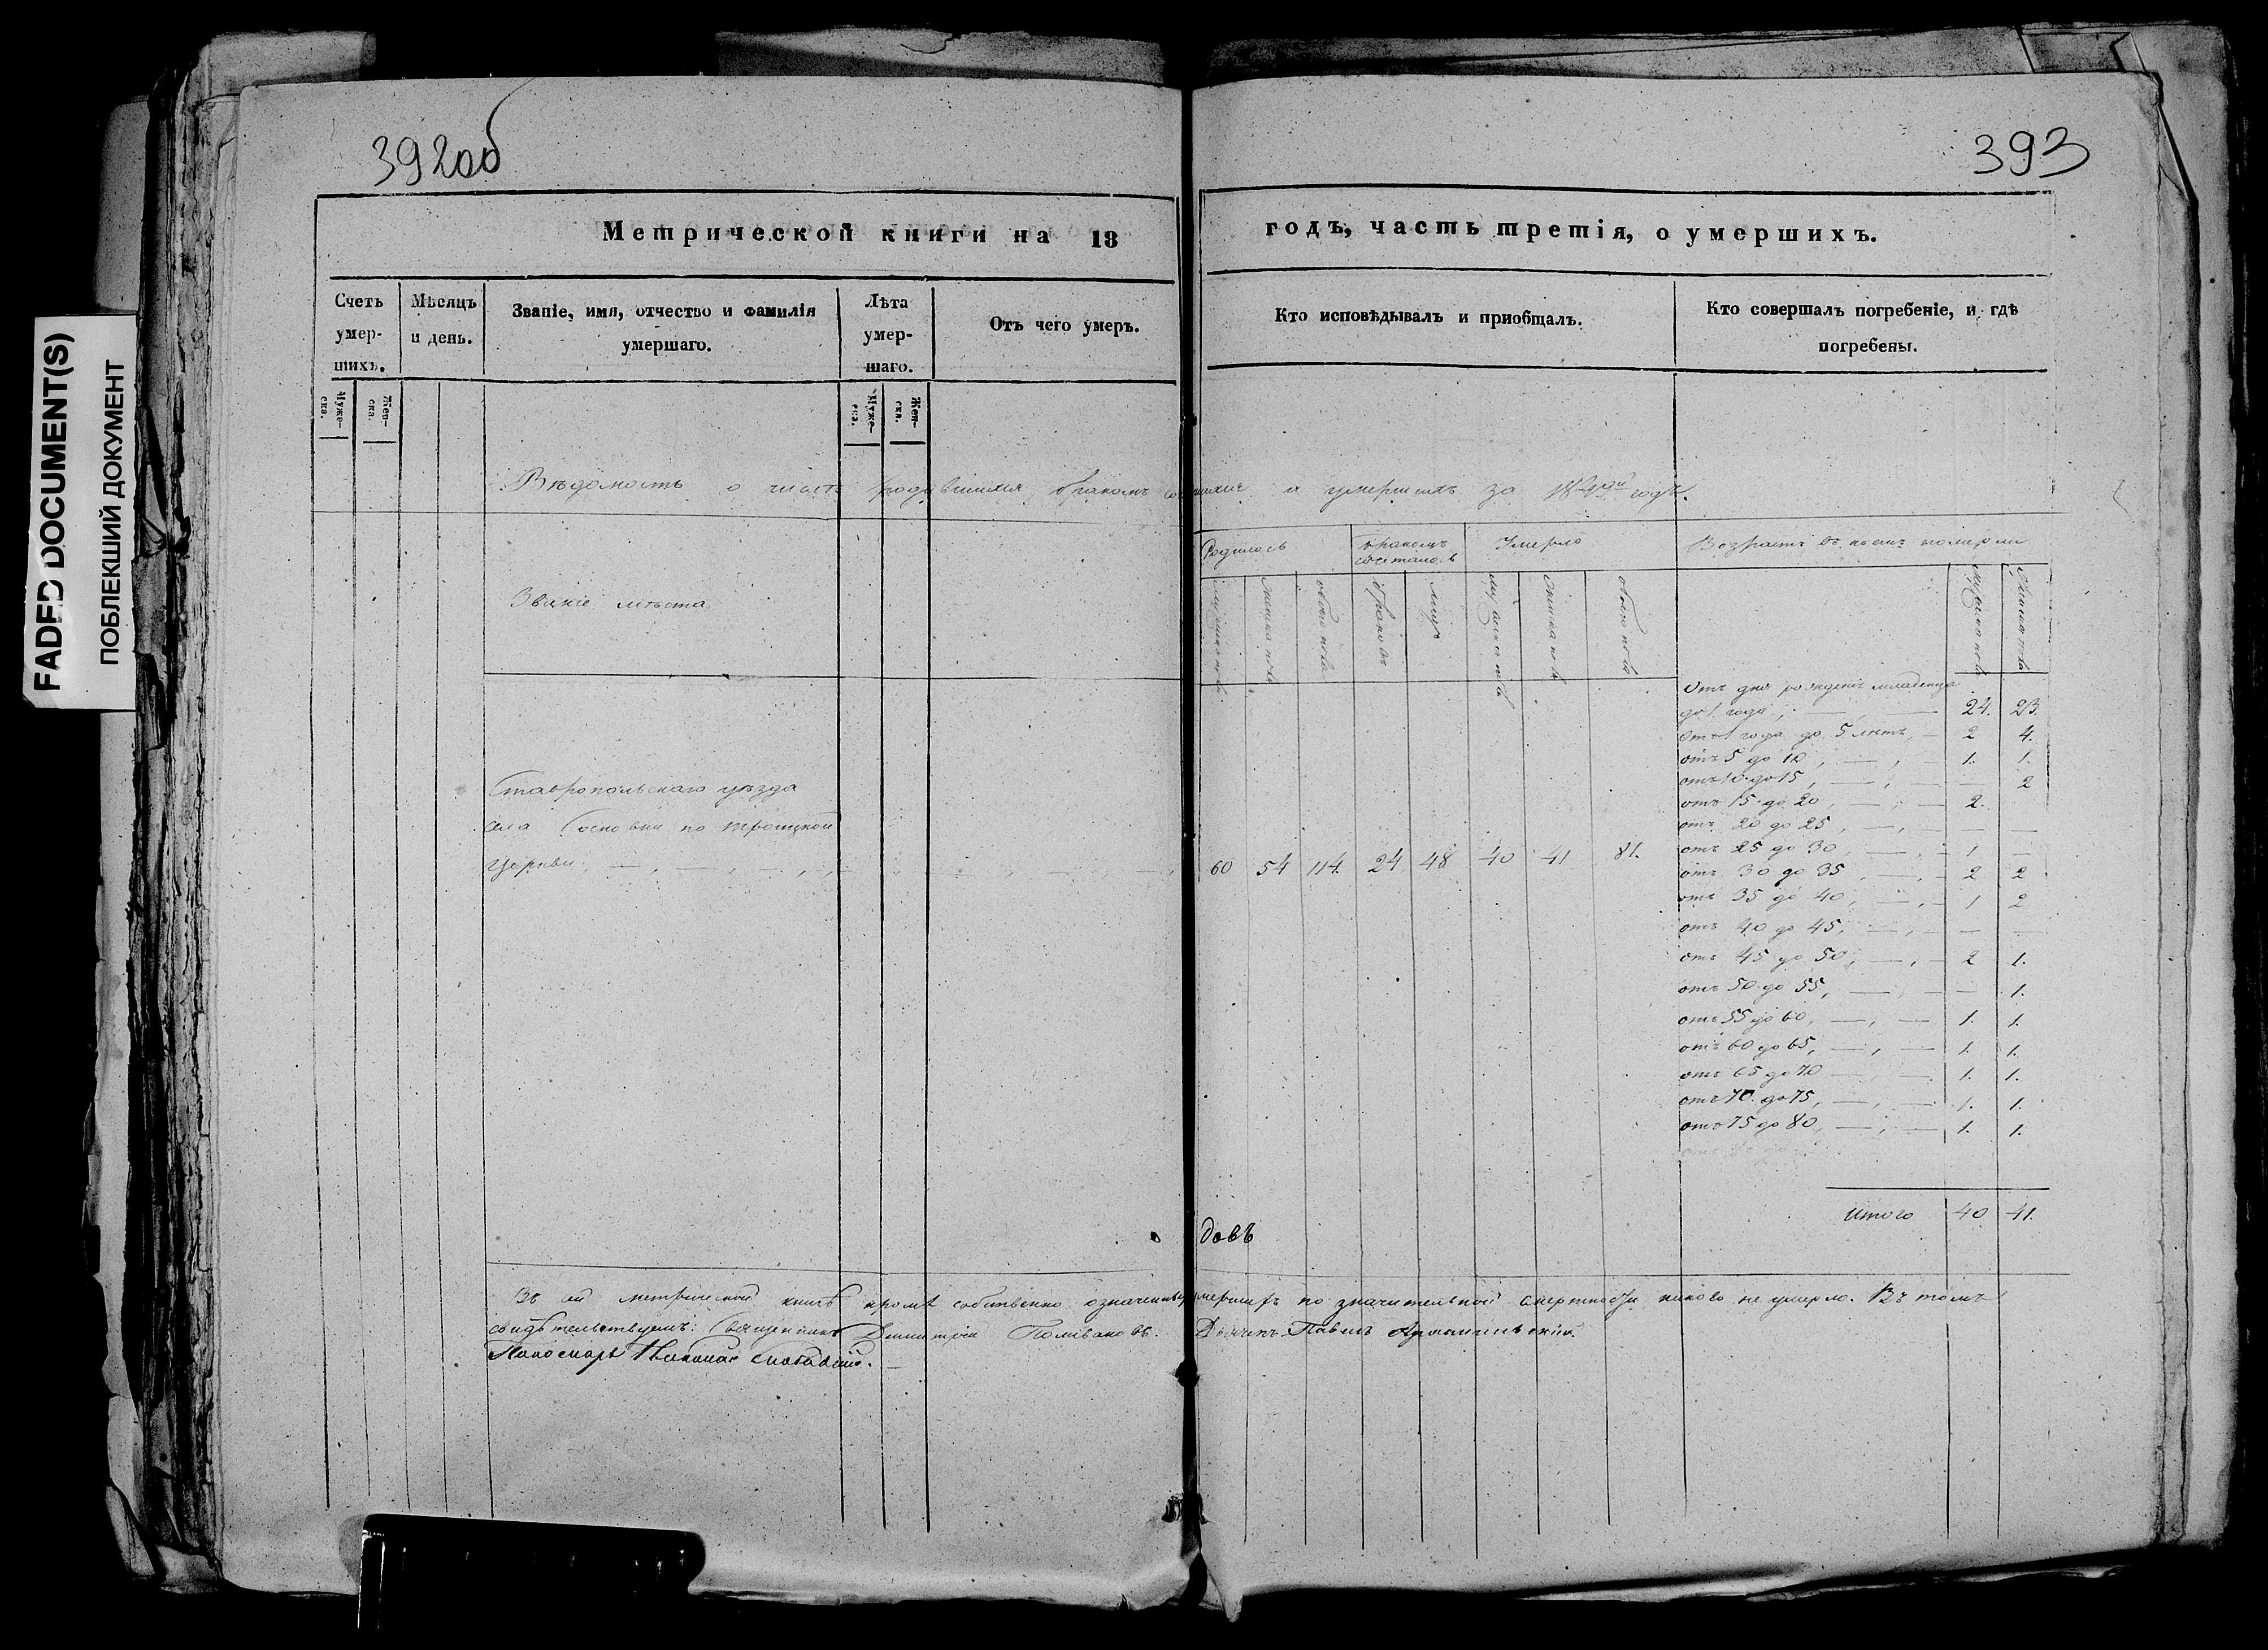 FADED DOCUMENT(S)
ПОБЛЕКШИЙ ДОКУМЕНТ
392об
393
Метрической книги на 18 годъ, часть третія, о умершихъ.
Счетъ умер-шихъ.
Мѣсяцъ и день.
Званіе, имя, отчество и фамилія умершаго.
Лѣта умер-шаго.
Отъ чего умеръ.
Кто исповѣдывалъ и пріобщалъ.
Кто совершалъ погребеніе, и гдѣ погребены.
Муже-ска.
Жен-ска.
Муже-ска.
Жен-ска.
Вѣдомость о числѣ родившихся бракомъ и умершихъ за 1849й годъ.
Званіе мѣста
Родилось
бракомъ сочеталось
Умерло
Возрастъ въ коемъ померли
мужска пола
женска пола
обоего пола
браковъ
лицъ
мужеска пола
женска пола
обоего пола
мужеска пола
женска пола
Ставропольскаго уѣзда
села Сосновки по троицкой
церкви 60 54 114. 24 48 40 41 81.
Отъ дня рожденія младенца
до 1. года, 24. 23.
отъ 1 года до 5 лѣтъ, 2 4.
отъ 5 до 10, 1. 1.
отъ 10 до 15, — 2
отъ 15 до 20, 2.
отъ 20 до 25, — —
отъ 25 до 30, 1 —
отъ 30 до 35, 2 2
отъ 35 до 40, 1 2
отъ 40 до 45, — —
отъ 45 до 50, 2 1.
отъ 50 до 55, — 1.
отъ 55 до 60, 1. 1.
отъ 60 до 65, 1. 1.
отъ 65 до 70 1. 1.
отъ 70 до 75, 1. 1.
отъ 75 до 80, 1. 1.
Итого 40 41.
довъ
Въ сей метрической книгѣ кромѣ собственно означенныхъ умершихъ по значительной смертности никого не умерло. Въ томъ
свидѣтельствуемъ: Священникъ Димитрій Поливановъ. Павелъ
Пономарь Николай